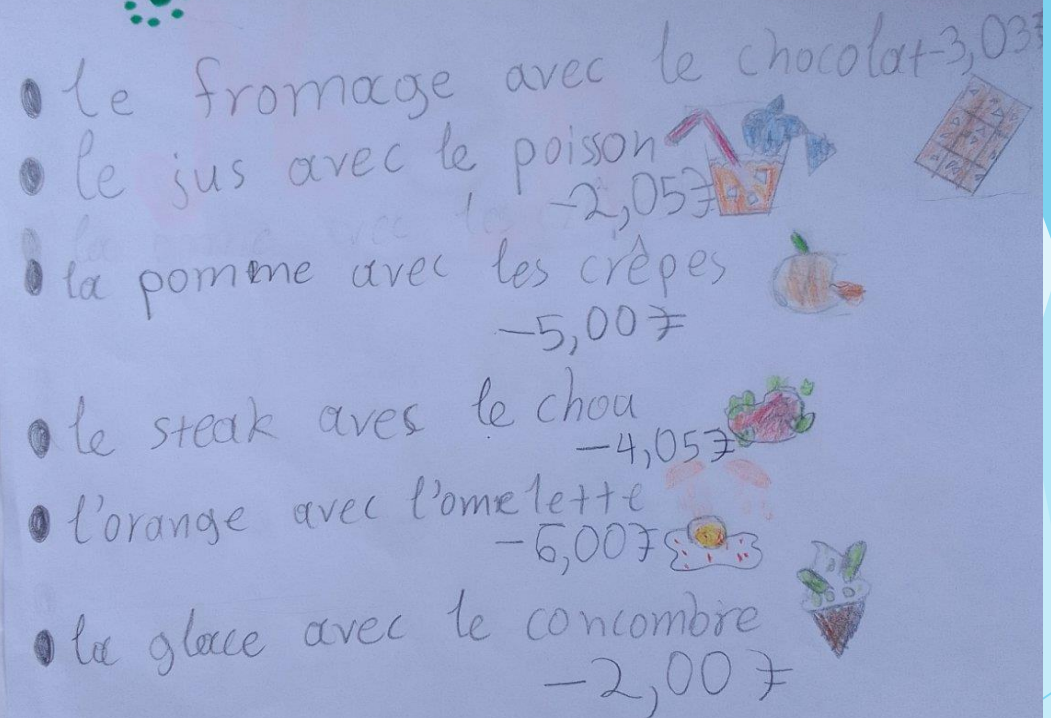 le fromage avec le chocolat-3,03₣
le jus avec le poisson
-2,05₣
la pomme avec les crêpes
-5,00₣
le steak aves le chou
-4,05₣
l'orange avec l'omelette
-6,00₣
la glace avec le concombre
-2,00₣